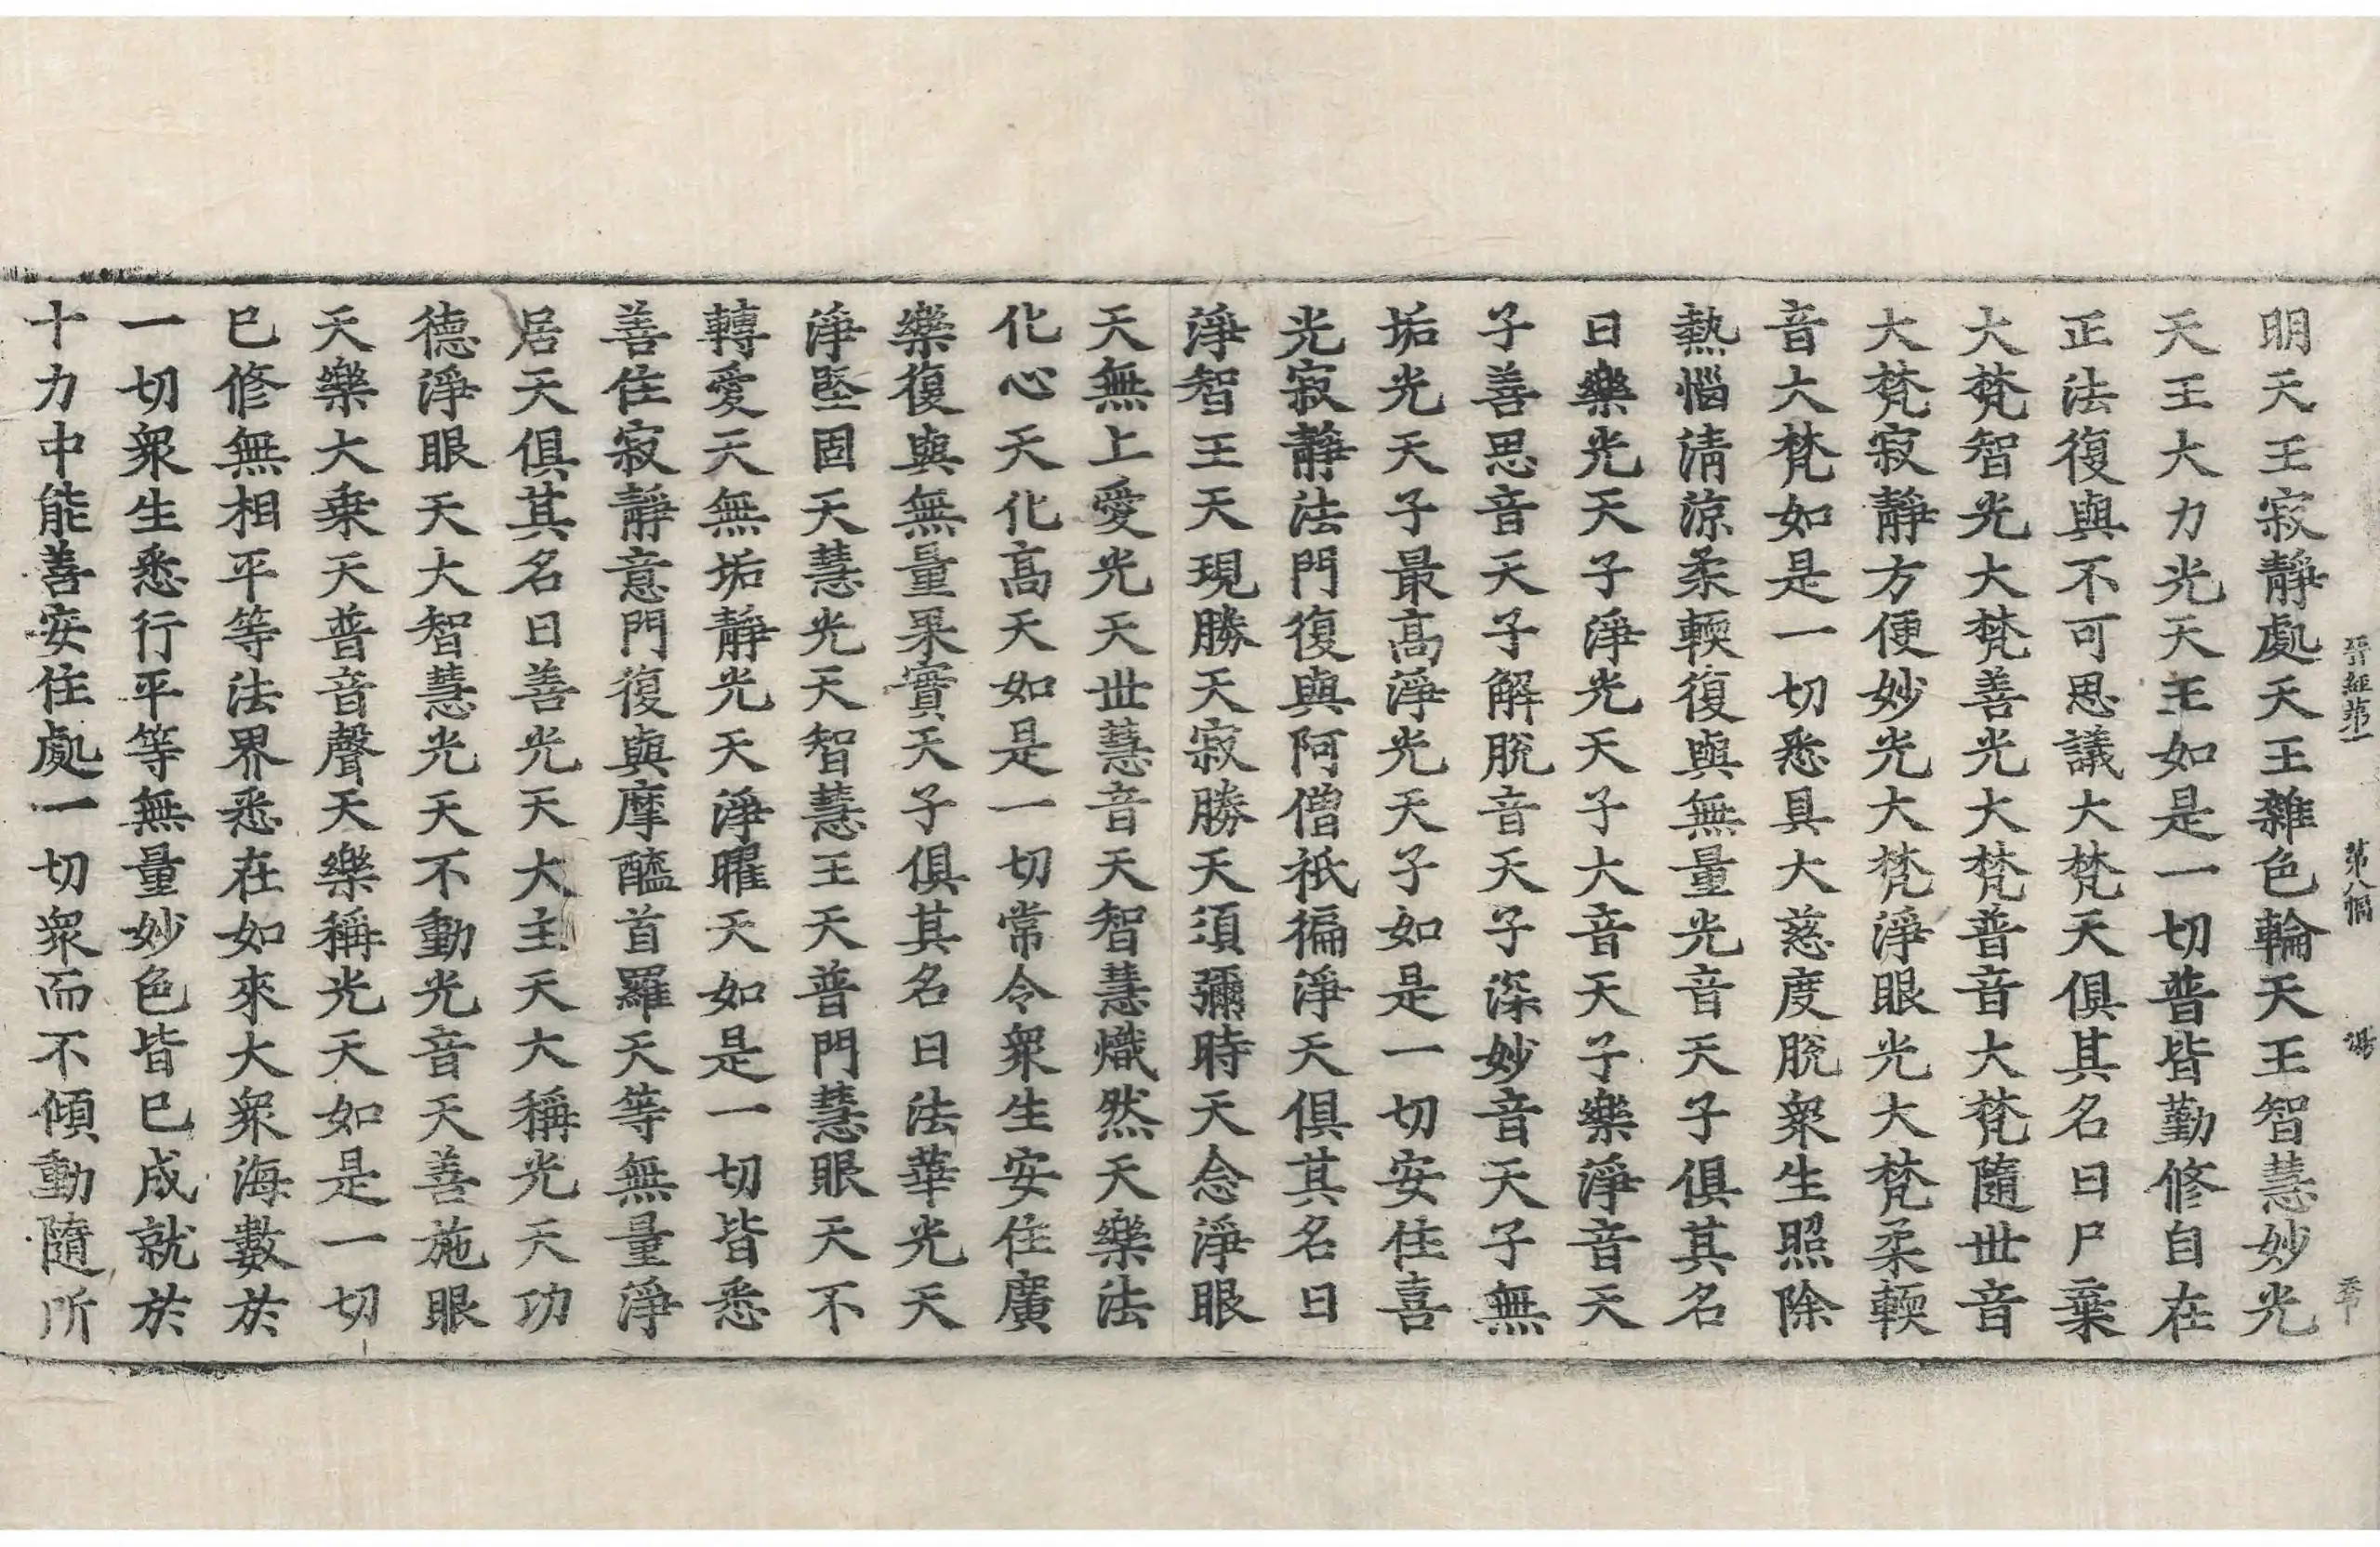 晉經第一 第八幅 湯
明天王寂靜處天王雜色輪天王智慧妙光
天王大力光天王如是一切普皆勤修自在
正法復與不可思議大梵天俱其名曰尸棄
大梵智光大梵善光大梵普音大梵隨世音
大梵寂靜方便妙光大梵淨眼光大梵柔輭
音大梵如是一切悉具大慈度脫衆生照除
熱惱清涼柔輭復與無量光音天子俱其名
曰樂光天子淨光天子大音天子樂淨音天
子善思音天子解脫音天子深妙音天子無
垢光天子最高淨光天子如是一切安住喜
光寂靜法門復與阿僧祇徧淨天俱其名曰
淨智王天現勝天寂勝天須彌時天念淨眼
天無上愛光天世慧音天智慧熾然天樂法
化心天化高天如是一切常令衆生安住廣
樂復與無量果實天子俱其名曰法華光天
淨堅固天慧光天智慧王天普門慧眼天不
轉愛天無垢靜光天淨曜天如是一切皆悉
善住寂靜意門復與摩醯首羅天等無量淨
居天俱其名曰善光天大主天大稱光天功
德淨眼天大智慧光天不動光音天善施眼
天樂大乗天普音聲天樂稱光天如是一切
已修無相平等法界悉在如來大衆海數於
一切衆生悉行平等無量妙色皆已成就於
十力中能善安住處一切衆而不傾動隨所